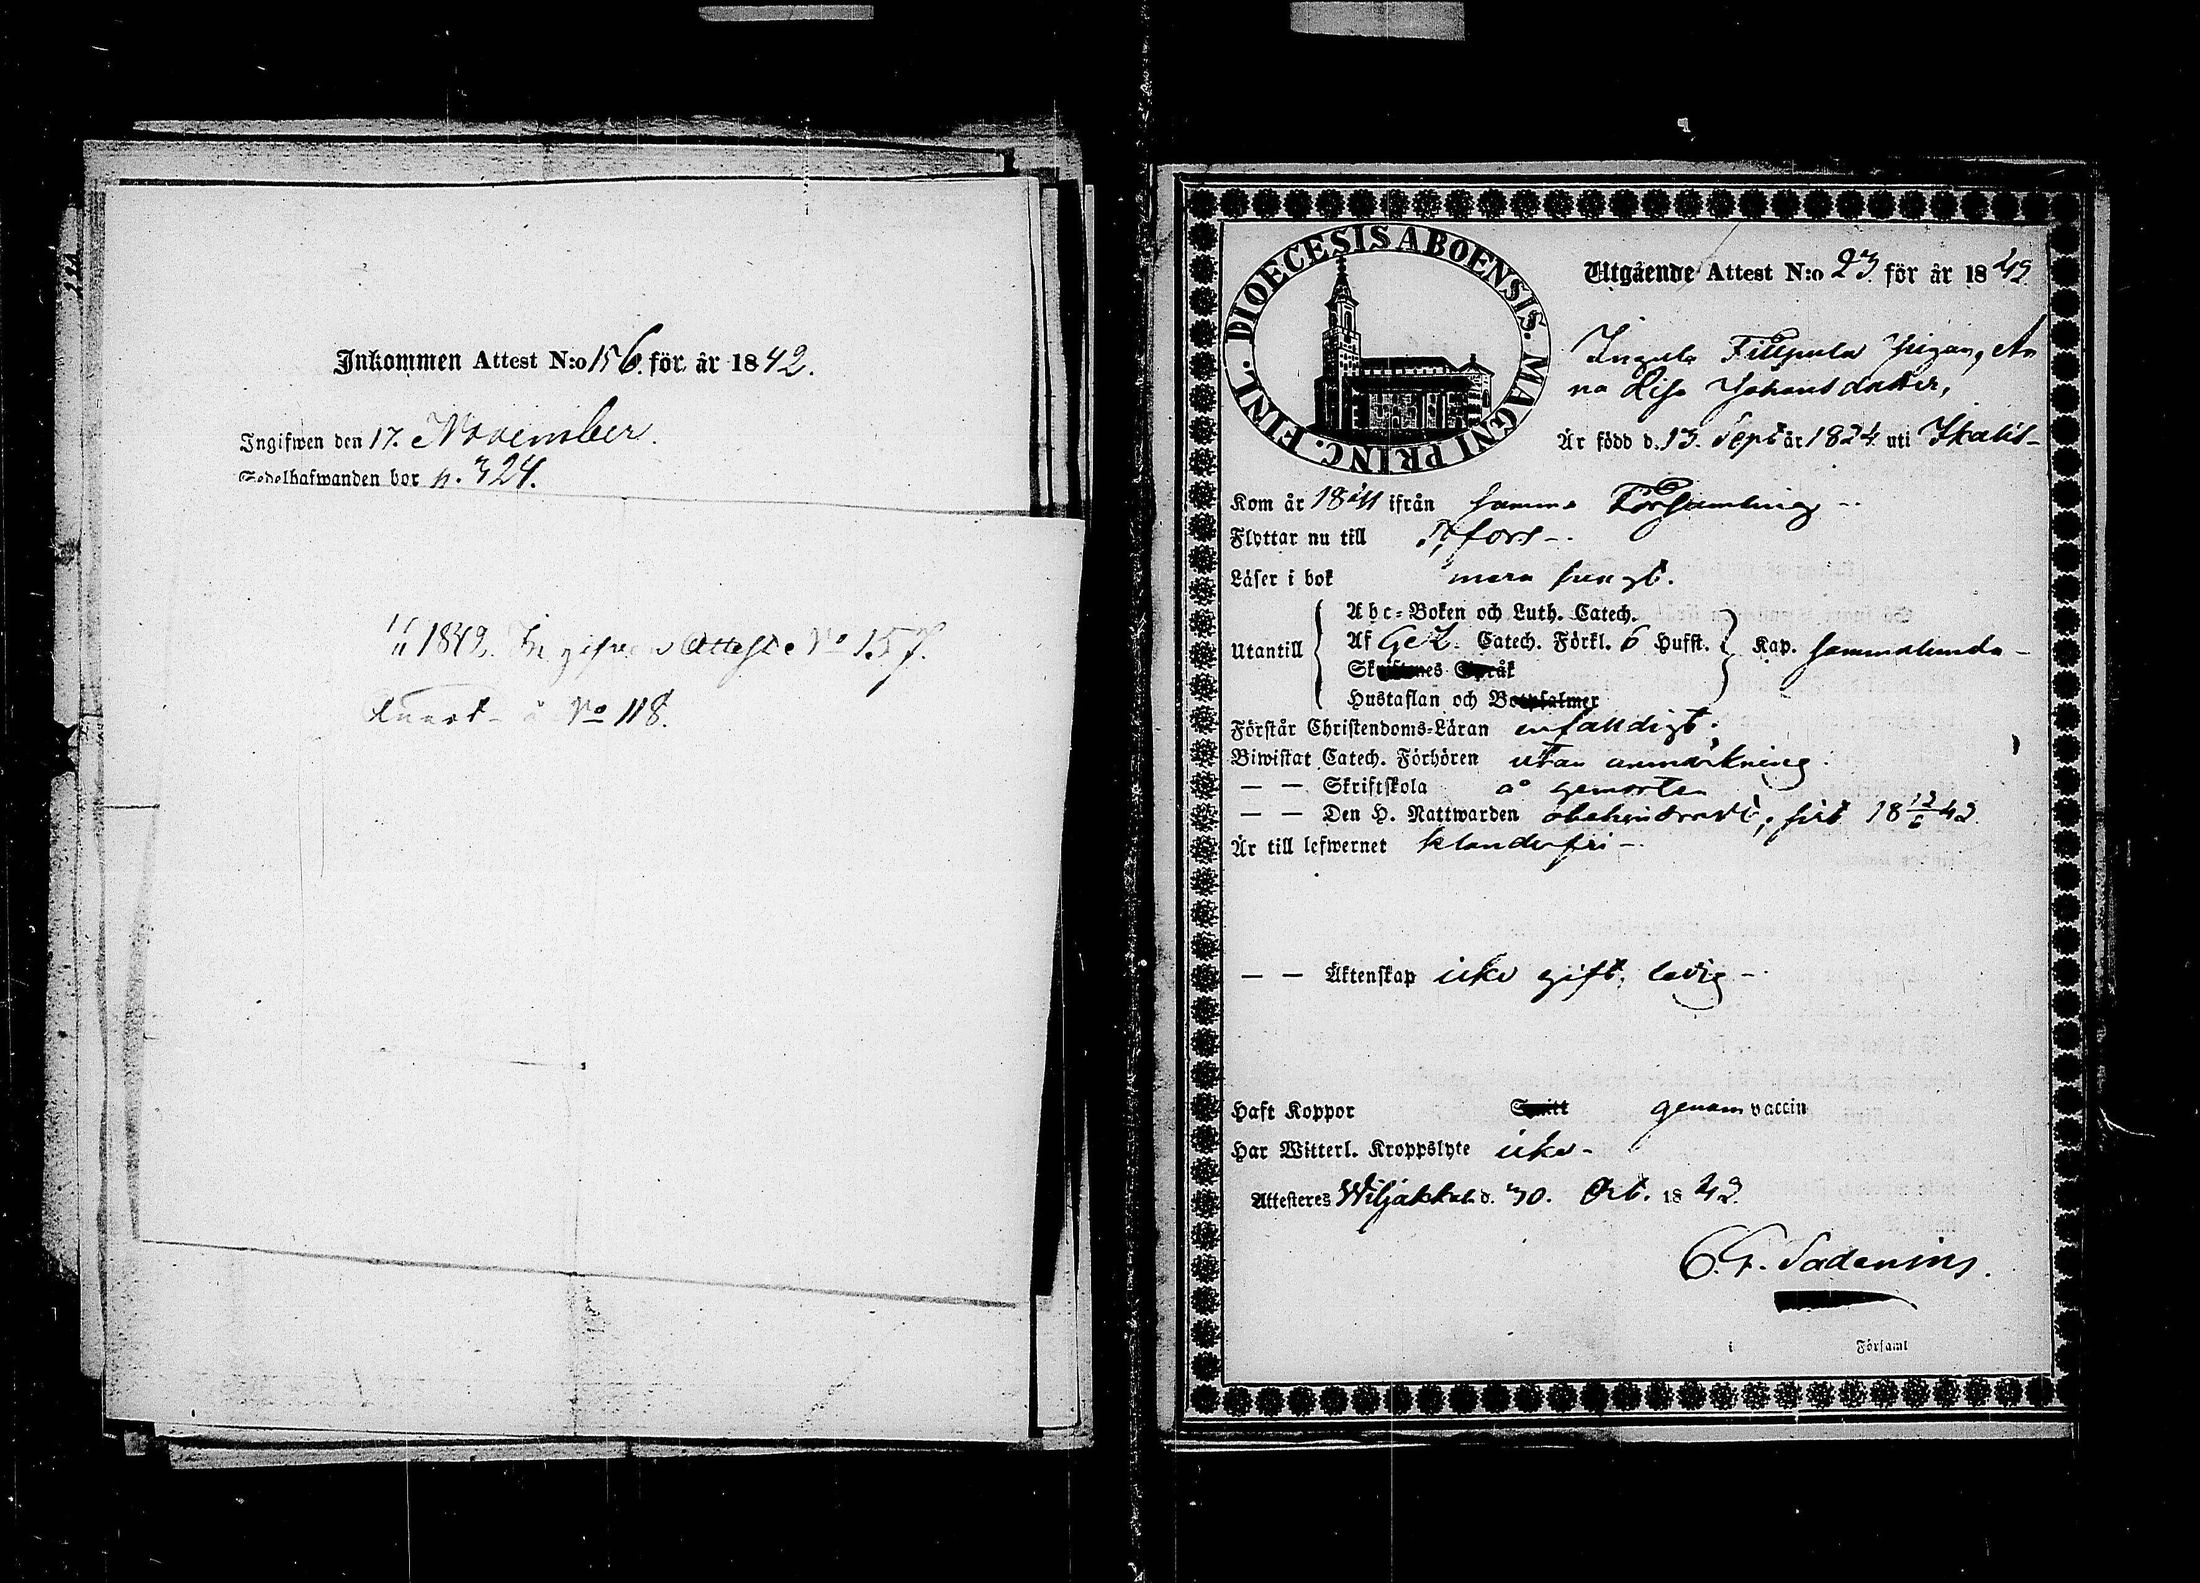 Inkommen Attest N:o 156. för år 1842.
Ingifwen den 17. November.
Sedelhafwanden bor p. 324.
1842. Ingifven Attest No 157.
No 118.
FINL. DIOECESIS ABOENSIS. MAGNI PRINC.
Utgående Attest N:o 23. för år 1842.
Pigan, An
na Lisa Johansdotter,
Är född d. 13. Sept år 1824. uti Ikalis-
Kom år 1841 ifrån samma Församling --
Flyttar nu till T,fors-.
Läser i bok
Utantill
Abc-Boken och Luth. Catech.
Af Catech. Förkl. 6 Hufst.
Skriftenes Språk
Hustaflan och Botpsalmer
Kap. sammalunda -
Förstår Christendoms-Läran enfalldigt.
Biwistat Catech. Förhören utan anmärkning.
— — Skriftskola å gemorten
— — Den H. Nattwarden obehindradt, sist 18 12/6 42.
Är till lefwernet klanderfri -.
— — Äktenskap icke gift, ledig -.
Haft Koppor Smitt genom vaccin
Har Witterl. Kroppslyte icke -
Attesteres Wiljakkala d. 30. Oct. 1842.
C. G. Sadenius.
i Församl